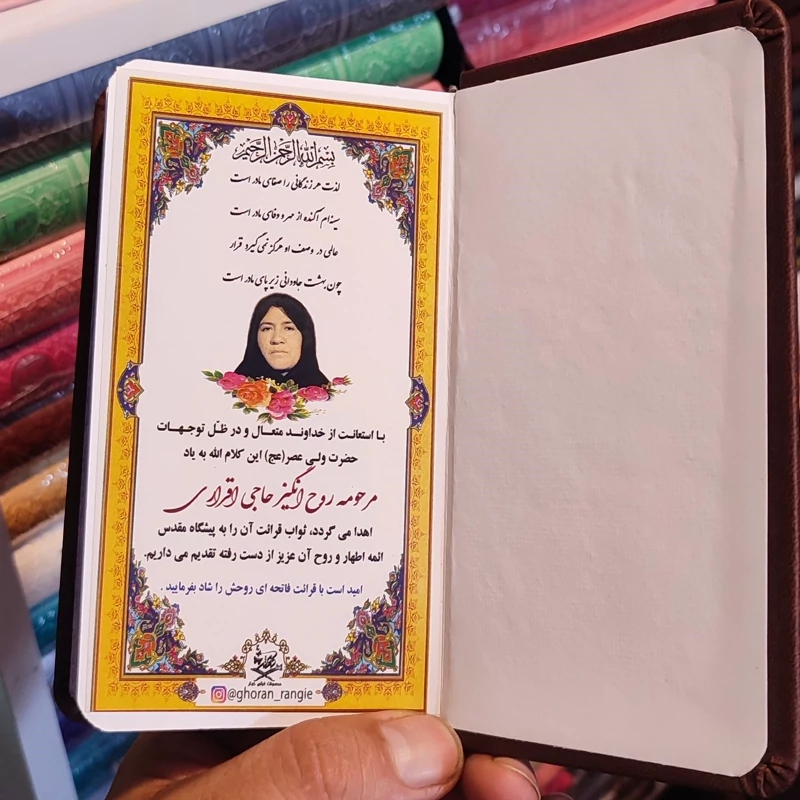 بسم الله الرحمن الرحیم
لذت هر زندگانی را صفای مادر است
سینه‌ام آکنده از مهر و وفای مادر است
عالمی در وصف او هرگز نمی گیرد قرار
چون بهشت جاودانی زیر پای مادر است
با استعانت از خداوند متعال و در ظلّ توجهات
حضرت ولی عصر(عج) این کلام الله به یاد
مرحومه روح انگیز حاجی اقراری
اهدا می گردد، ثواب قرائت آن را به پیشگاه مقدس
ائمه اطهار و روح آن عزیز از دست رفته تقدیم می داریم.
امید است با قرائت فاتحه ای روحش را شاد بفرمایید .
@ghoran_rangie